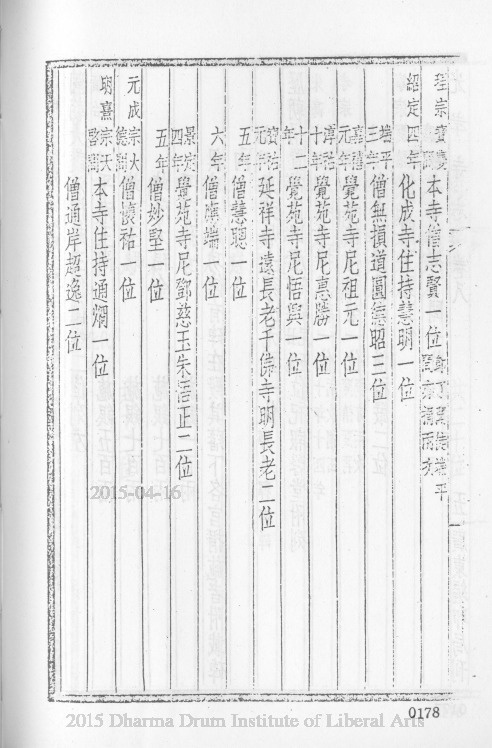 理宗寶慶間 本寺僧志賢一位
紹定四年 化成寺住持慧明一位
端平三年 僧無損道圓德昭三位
嘉禧元年 覺苑寺尼祖元一位
淳祐十年 覺苑寺尼惠勝一位
十二年 覺苑寺尼悟興一位
寶祐元年 延祥寺遠長老千佛寺明長老二位
五年 僧慧聰一位
六年 僧 端一位
景定四年 覺苑寺尼鄧慈玉朱悟正二位
五年 僧妙堅一位
元成宗大德間 僧懷祐一位
明熹宗天啓間 本寺住持通炯一位
僧通岸超逸二位
2015-04-16
0178
2015 Dharma Drum Institute of Liberal Arts